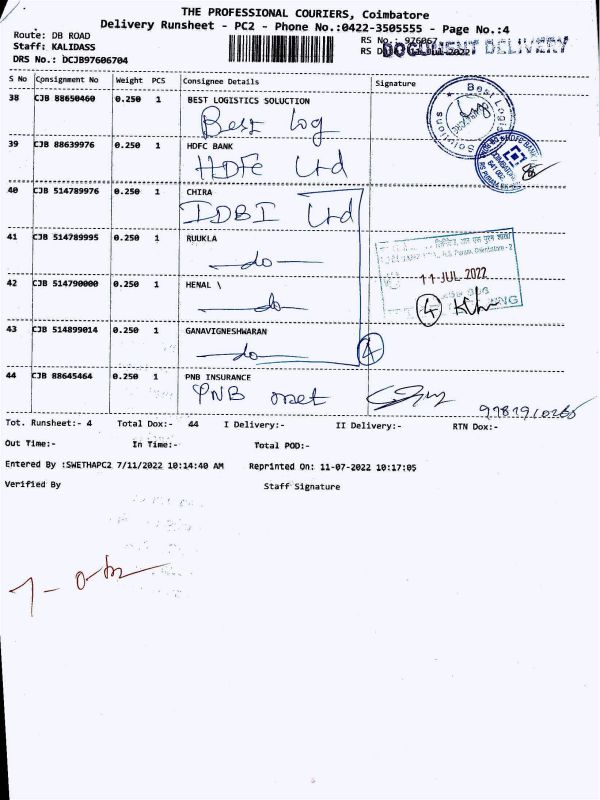 THE PROFESSIONAL COURIERS, Coimbatore
Delivery Runsheet - PC2 - Phone No.:0422-3505555 - Page No.:4
Route: DB ROAD
Staff: KALIDASS
DRS No.: DCJB97606704
RS No.: 976067
DOCUMENT DELIVERY
S No Consignment No Weight PCS Consignee Details Signature
38 CJB 88650460 0.250 1 BEST LOGISTICS SOLUCTION
Best log
Best Logis Solutions
39 CJB 88639976 0.250 1 HDFC BANK
HDFC Ltd
40 CJB 514789976 0.250 1 CHIRA
IDBI Ltd
41 CJB 514789995 0.250 1 RUUKLA
-do-
11 JUL 2022
42 CJB 514790000 0.250 1 HENAL \
-do-
4
43 CJB 514899014 0.250 1 GANAVIGNESHWARAN
-do-
4
44 CJB 88645464 0.250 1 PNB INSURANCE
PNB met
Tot. Runsheet:- 4 Total Dox:- 44 I Delivery:- II Delivery:- RTN Dox:-
Out Time:- In Time:- Total POD:-
Entered By :SWETHAPC2 7/11/2022 10:14:40 AM Reprinted On: 11-07-2022 10:17:05
Verified By Staff Signature